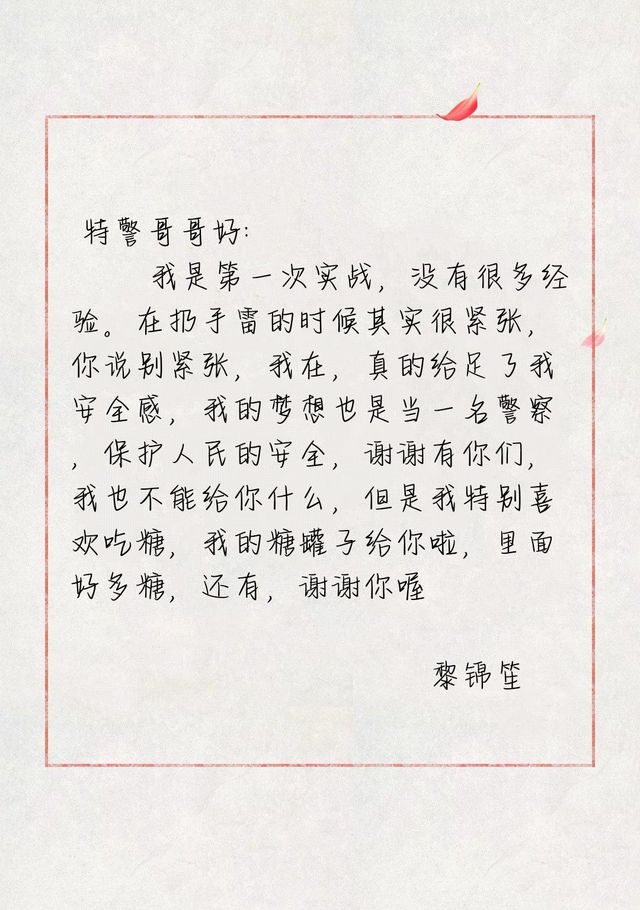 特警哥哥好:
我是第一次实战，没有很多经
验。在扔手雷的时候其实很紧张，
你说别紧张，我在，真的给足了我
安全感，我的梦想也是当一名警察
，保护人民的安全，谢谢有你们，
我也不能给你什么，但是我特别喜
欢吃糖，我的糖罐子给你啦，里面
好多糖，还有，谢谢你喔
黎锦笙